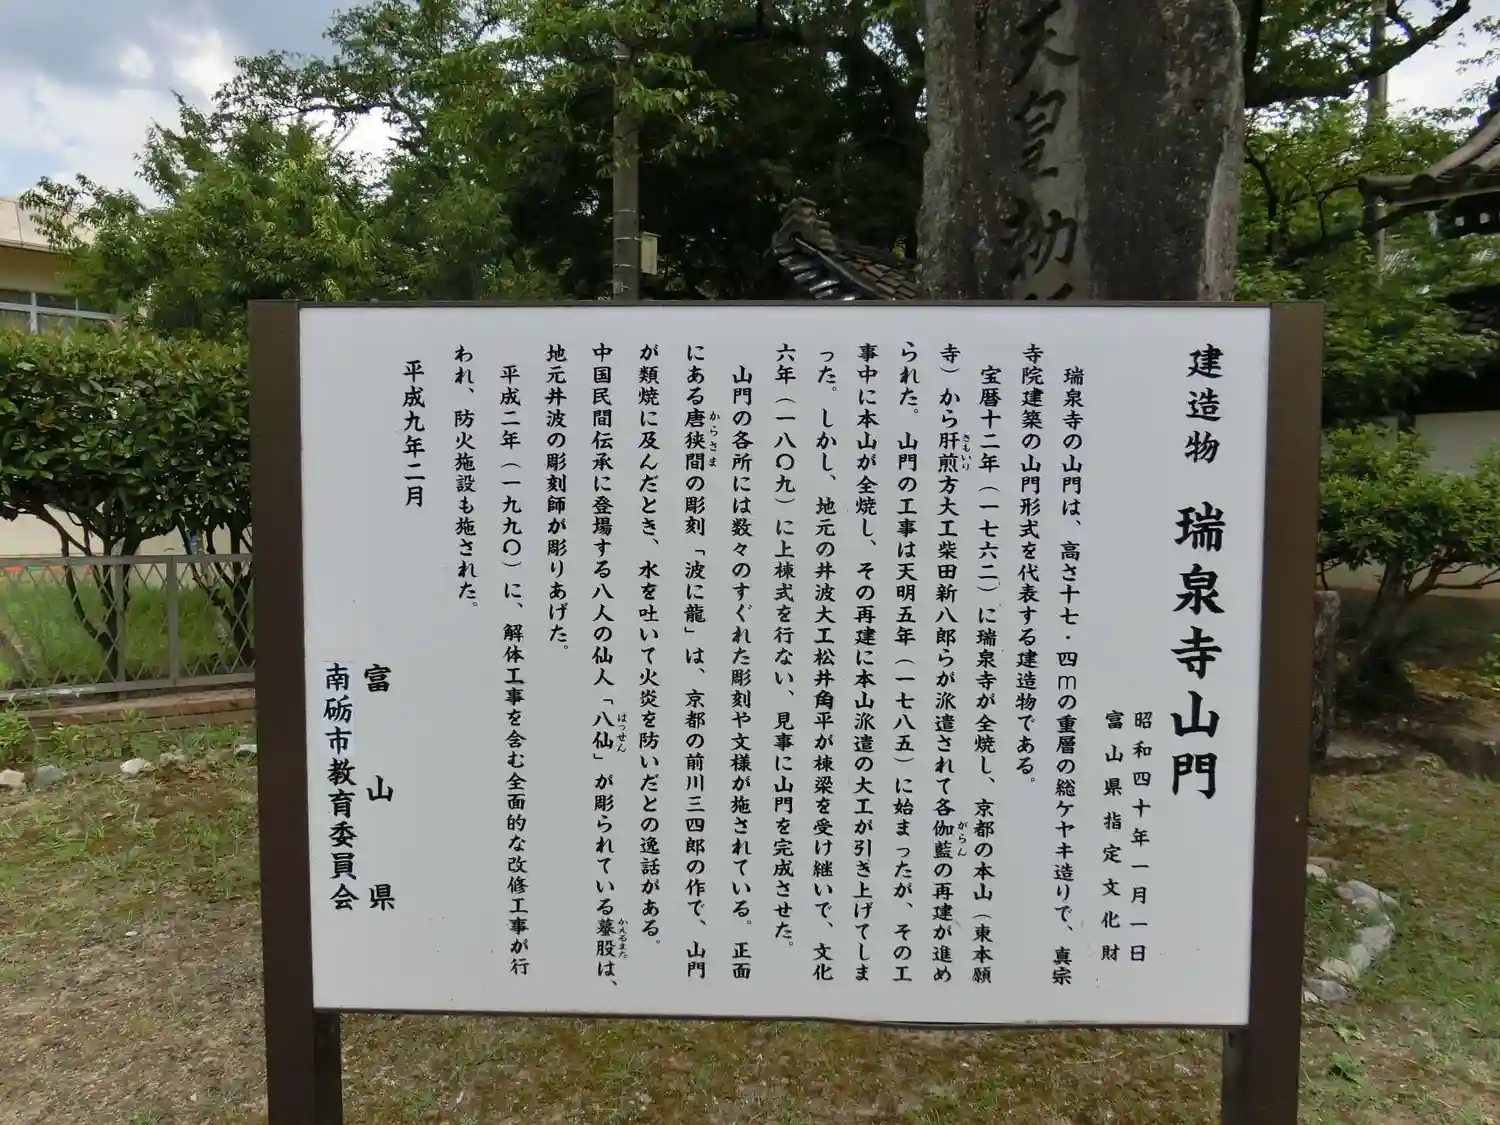 天皇勅
建造物 瑞泉寺山門
昭和四十年一月一日
富山県指定文化財
瑞泉寺の山門は、高さ十七・四mの重層の総ケヤキ造りで、真宗
寺院建築の山門形式を代表する建造物である。
宝暦十二年（一七六二）に瑞泉寺が全焼し、京都の本山（東本願
寺）から肝煎方大工柴田新八郎らが派遣されて各伽藍の再建が進め
きもいり
がらん
られた。山門の工事は天明五年（一七八五）に始まったが、その工
事中に本山が全焼し、その再建に本山派遣の大工が引き上げてしま
った。しかし、地元の井波大工松井角平が棟梁を受け継いで、文化
六年（一八〇九）に上棟式を行ない、見事に山門を完成させた。
山門の各所には数々のすぐれた彫刻や文様が施されている。正面
にある唐狭間の彫刻「波に龍」は、京都の前川三四郎の作で、山門
からさま
が類焼に及んだとき、水を吐いて火炎を防いだとの逸話がある。
中国民間伝承に登場する八人の仙人「八仙」が彫られている蟇股は、
はっせん
かえるまた
地元井波の彫刻師が彫りあげた。
平成二年（一九九〇）に、解体工事を含む全面的な改修工事が行
われ、防火施設も施された。
平成九年二月
富山県
南砺市教育委員会